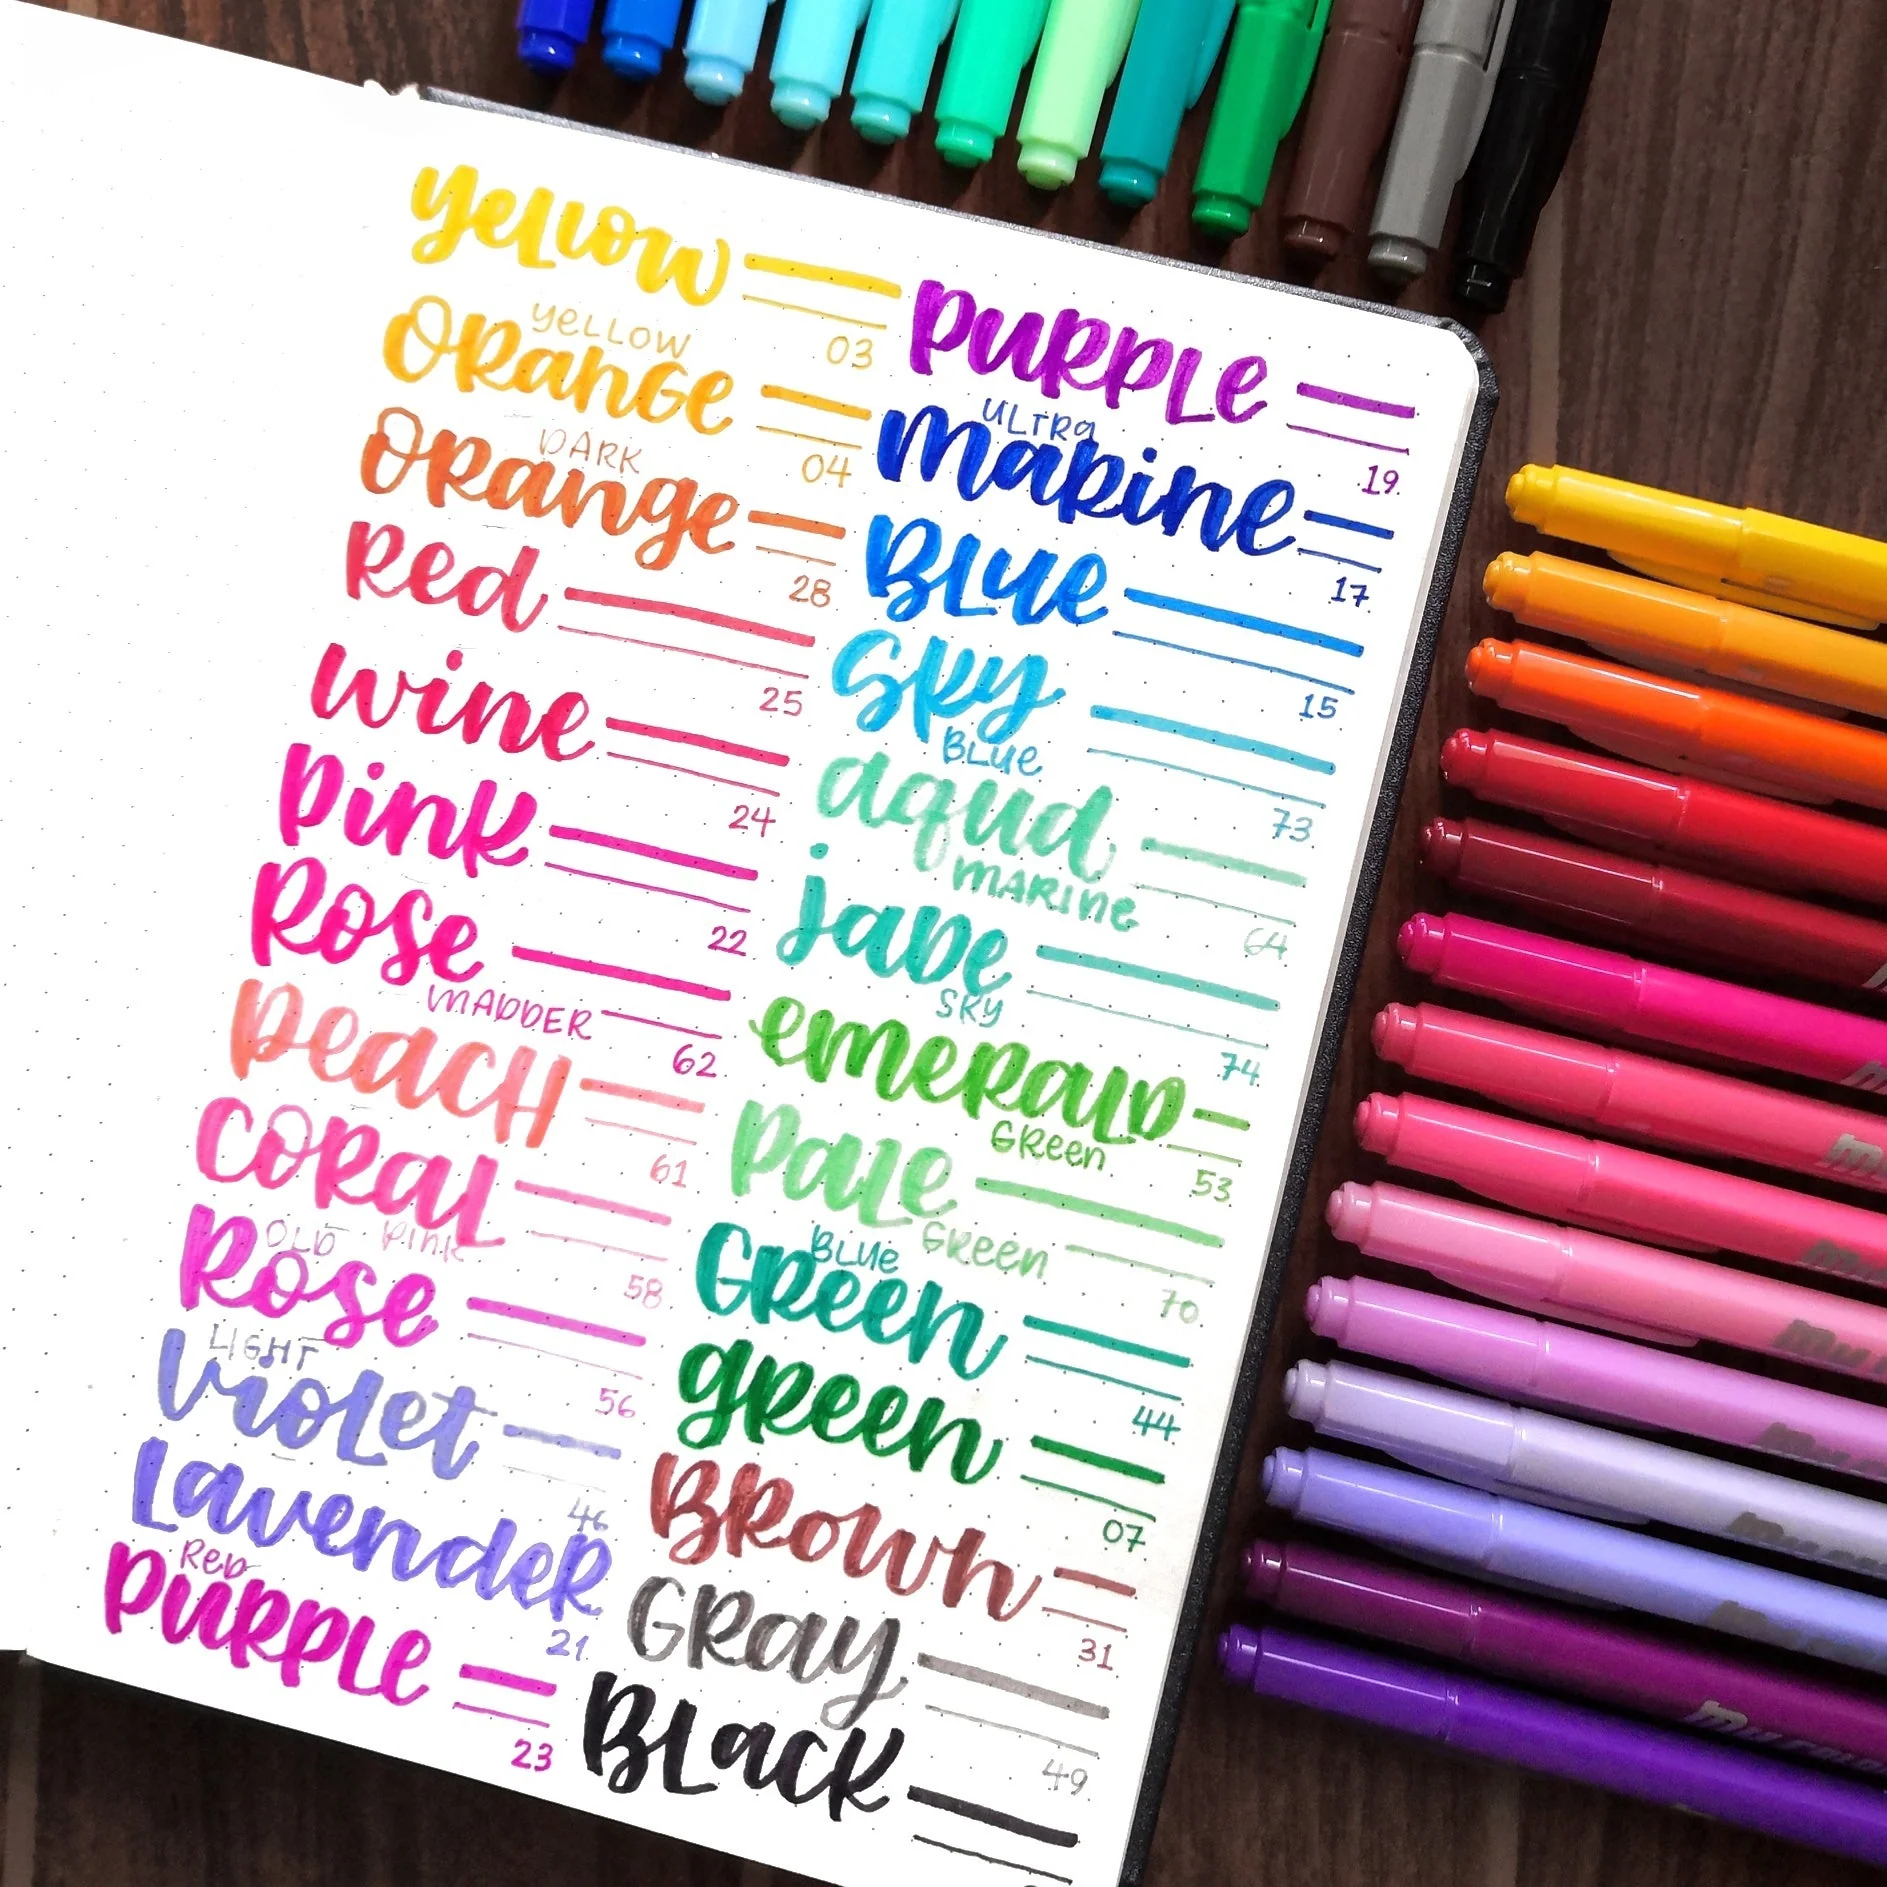 Yellow
03
YELLOW
ORANGE
04
DARK
ORange
28
Red
25
wine
24
Pink
22
Rose
MADDER
62
PeacH
61
CORaL
PInk
58
OLD
Rose
56
LIGHT
VioLet
46
LavendeR
21
ReD
PURPLe
23
PURPLe
19
ULTRa
maRine
17
BLue
15
Sky
BLue
73
aqua
MARIne
64
jaDe
SKY
74
emeRaLD
GReen
53
PaLe
GReen
70
BLUe
GReen
44
gReen
07
BRown
31
GRay
49
BLacK